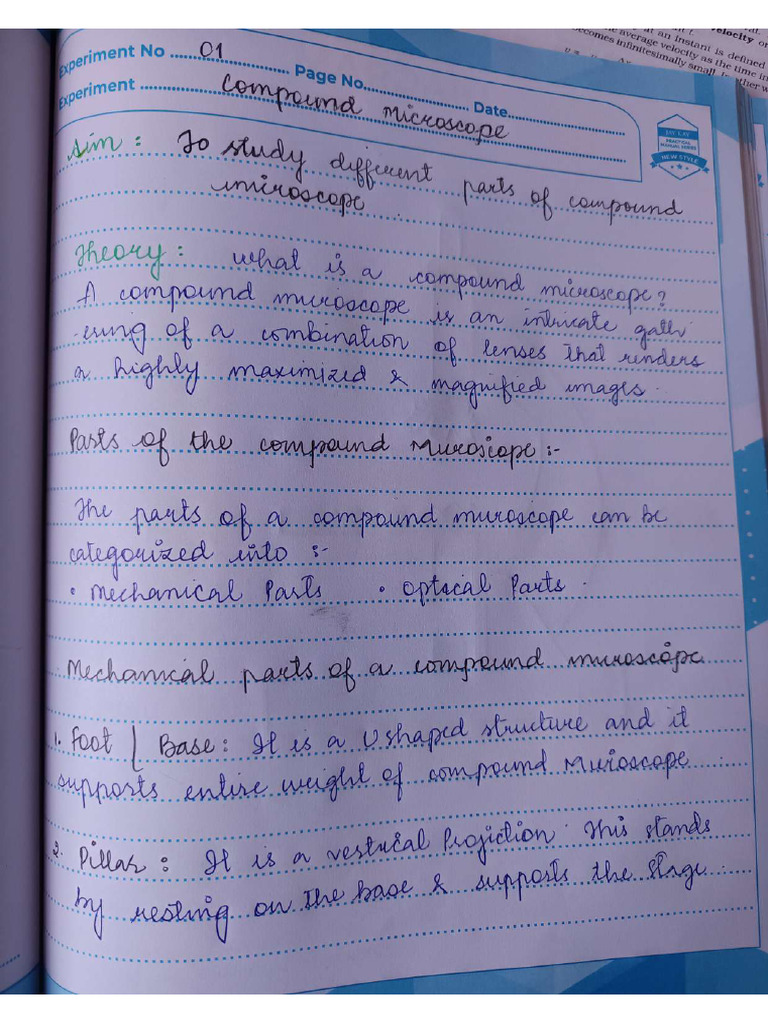 at an instant is defined
velocity or
the average velocity as the time in
becomes infinitesimally small
Experiment No 01
Page No. Date
Experiment Compound Microscope
JAY CAY
PRACTICAL
MANUAL SERIES
NEW STYLE
Aim : To study different parts of compound
microscope .
Theory : What is a compound microscope?
A compound microscope is an intricate gath
-ering of a combination of lenses that renders
a highly maximized & magnified images .
Parts of the compound Microscope :-
The parts of a compound microscope can be
categorized into :-
• Mechanical Parts • Optical Parts .
Mechanical parts of a compound microscope
1. Foot | Base : It is a U shaped structure and it
supports entire weight of compound Microscope
2. Pillar : It is a vertical Projection . This stands
by resting on the base & supports the stage .